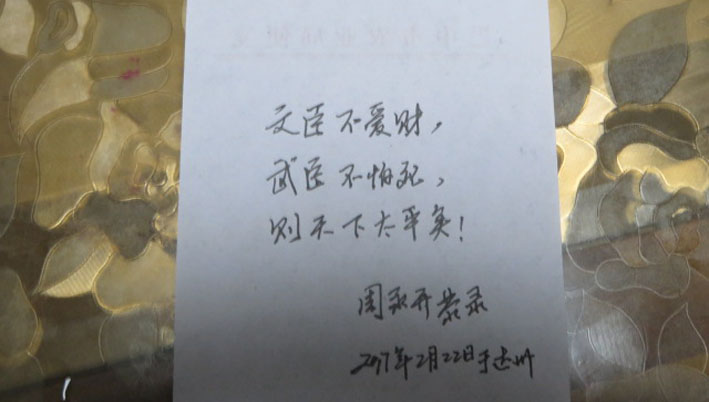 文臣不爱财，
武臣不怕死，
则天下太平矣！
周永开恭录
2017年2月22日于达州